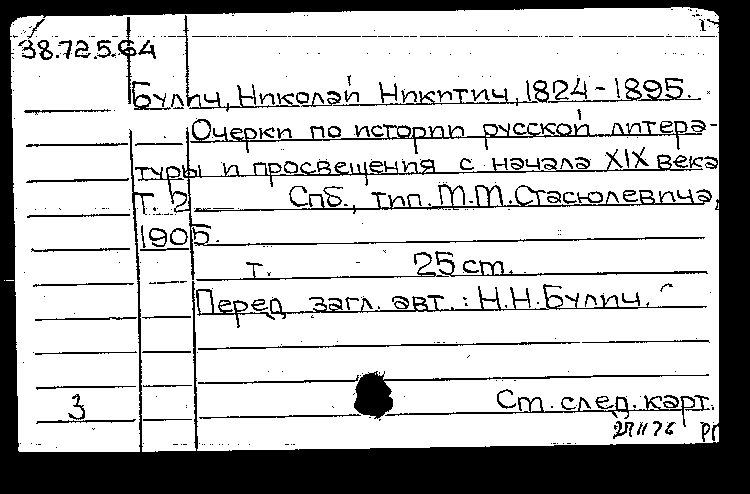 38.72.5.64
Булич, Николай Никитич, 1824-1895.
Очерки по истории русской литера-
туры и просвещения с начала XIX века
Т. 2 Спб., тип. М.М.Стасюлевича,
1905.
т. 25 cm.
Перед загл. авт.: Н.Н.Булич.
3 См. след. карт.